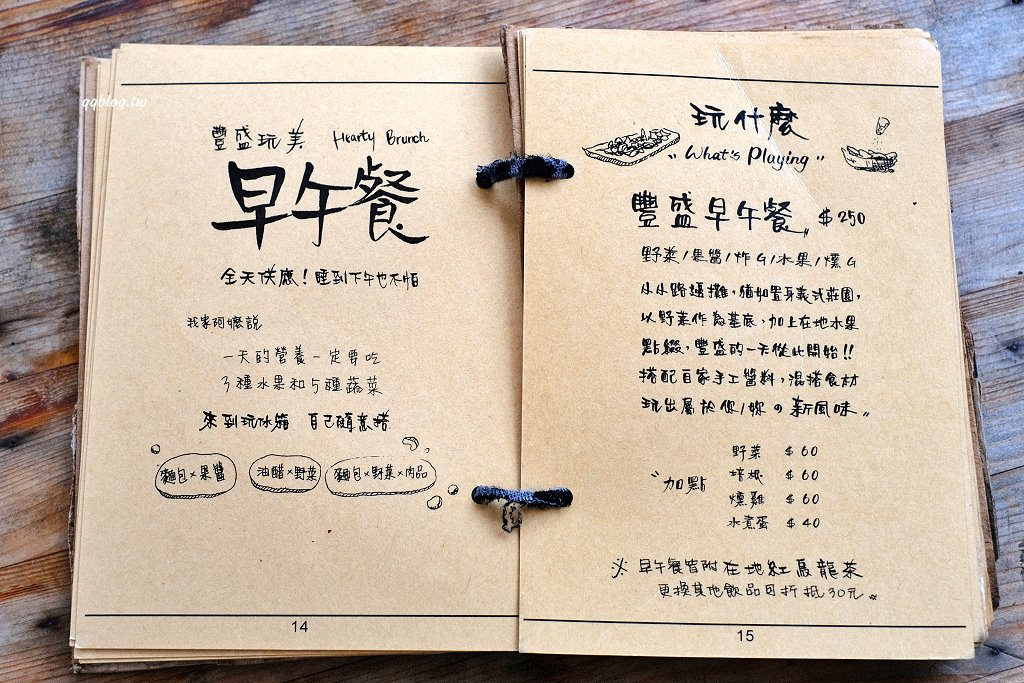 qqblog.tw
豐盛玩美 Hearty Brunch
早午餐
全天供應！睡到下午也不怕
我家阿嬤說
一天的營養一定要吃
3種水果和5種蔬菜
來到玩冰箱 自己隨意搭
麵包×果醬
油醋×野菜
麵包×野菜×肉品
14
玩什麼
"What's Playing"
豐盛早午餐 $250
野菜/果醬/炸G/水果/燻G
小小路邊攤，猶如置身義式莊園，
以野菜作為基底，加上在地水果
點綴，豐盛的一天從此開始!!
搭配自家手工醬料，混搭食材
玩出屬於你/妳の新風味
野菜 $60
"加點
培根 $60
燻雞 $60
水煮蛋 $40
※ 早午餐皆附在地紅烏龍茶
更換其他飲品可折抵30元。
15